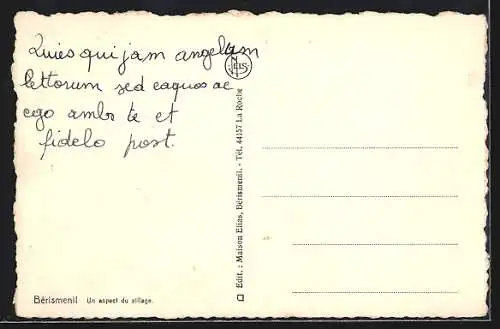 Quies qui jam angelam
lettorum sed eaquos ac
ego ambo te et
fidelo post.
NELS
Edit. : Maison Elias, Bérismenil. - Tél. 44157 La Roche
Bérismenil Un aspect du village.